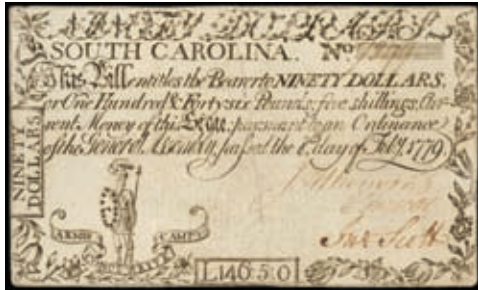 NINETY DOLLARS
SOUTH CAROLINA. No.
This Bill entitles the Bearer to NINETY DOLLARS,
or One Hundred & Forty six Pounds, five shillings, Cur-
rent Money of this State, pursuant to an Ordinance
of the General Assembly, passed the 8. day of Feby. 1779.
NINETY
DOLLARS
ARMIS CAPTA
L146:5:0